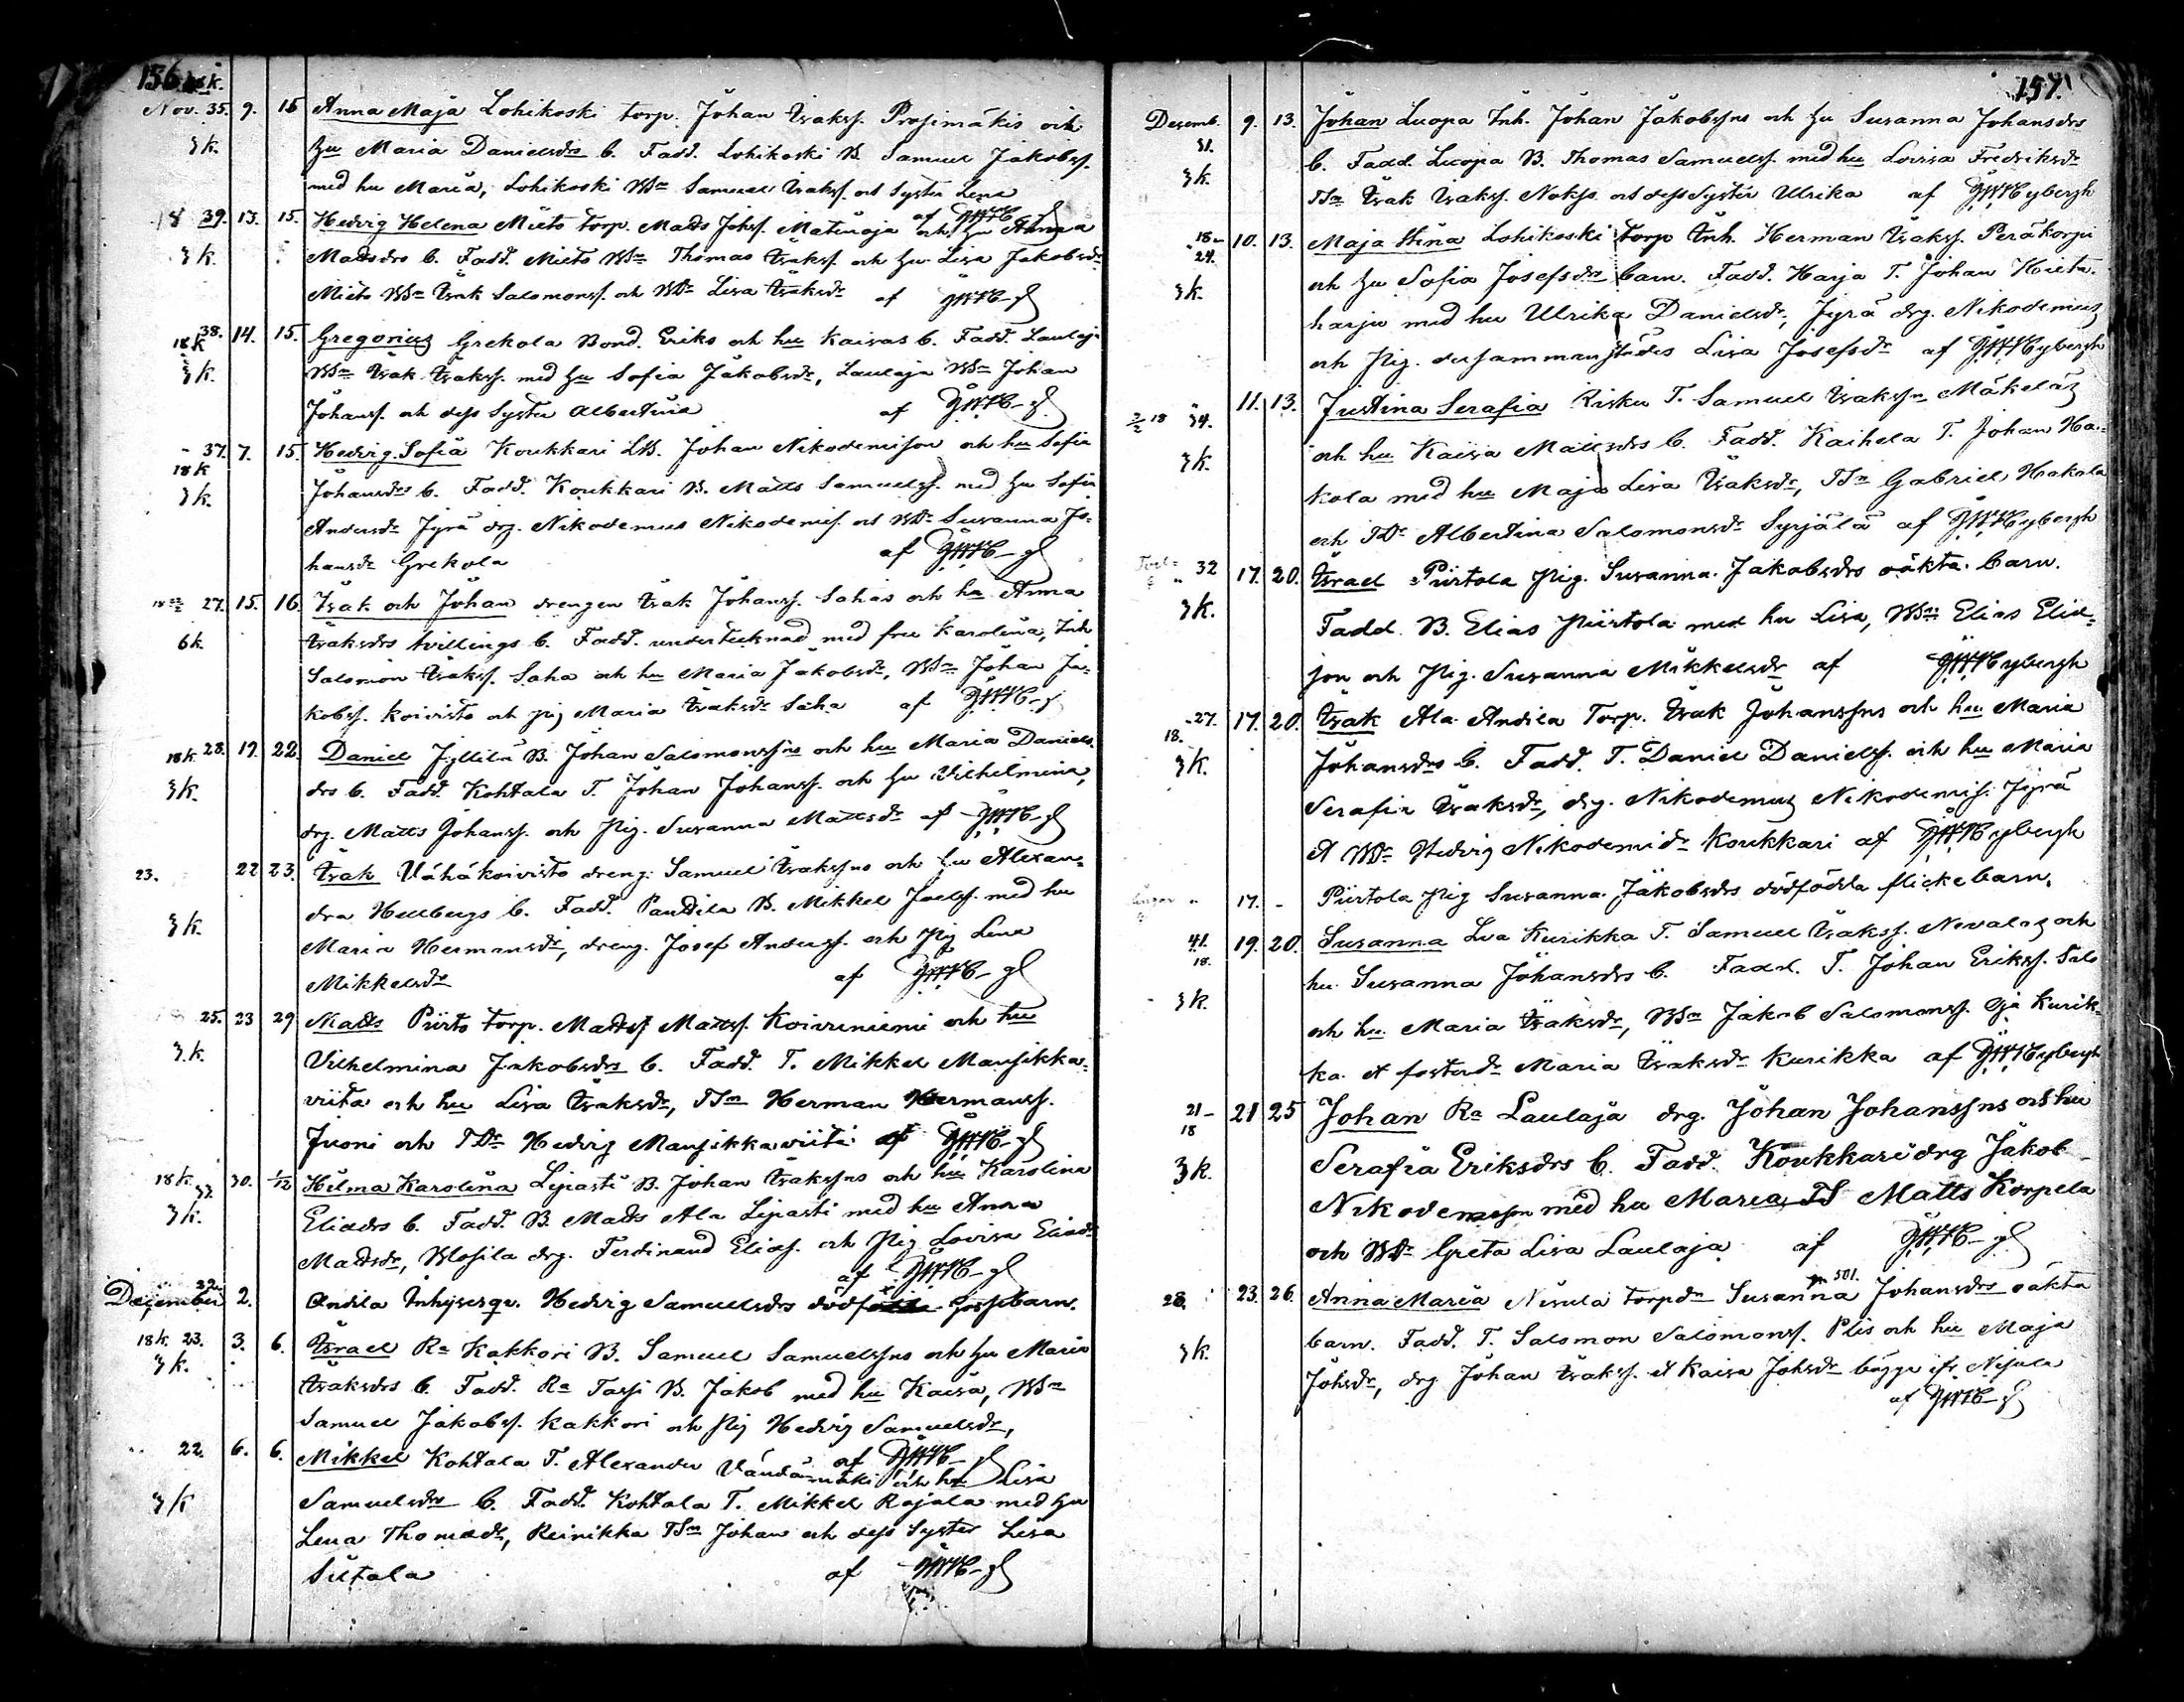 156 k.
Nov. 35. 9. 15 Anna Maja Lohikoski torp. Johan Isakss. Prosimäkis och
3 k. hu Maria Danielsdrs b. Fadd. Lohikoski B. Samuel Jakobss.
med hu Maria, Lohikoski BSn Samuel Isakss. och syster Lena
af
39. 13. 15. Hedvig Helena Mieto torp. Matts Johss. och hu Anna
3 k. Mattsdrs b. Fadd. Mieto BSn Thomas Isakss. och hu Lisa Jakobsdr
Mieto BSn Isak Salomonss. och BDr Lisa Isaksdr af
38. 14. 15. Gregorius Grekola Bond. Eriks och hu Kaisas b. Fadd. Laulaja
18 k
3 k. BSn Isak Isakss. med hu Sofia Jakobsdr, Laulaja BSn Johan
Johanss. och dess syster Albertina af
37. 7. 15. Hedvig Sofia Koukkari LB. Johan Nikodemisson och hu Sofia
18 k
3 k. Johansdrs b. Fadd. Koukkari B. Matts Samuelss. med hu Sofia
Andersdr Jyrä drg. Nikodemus Nikodemis. och BDr Susanna Jo-
hansdr Grekola af
27. 15. 16. Isak och Johan drengen Isak Johanss. Sahas och hu Anna
6 k. Isaksdrs tvillings b. Fadd. undertecknad med fru Karolina, Inh
Salomon Isakss. Saha och hu Maria Jakobsdr, BSn Johan Ja-
kobss. Koivisto och pig Maria Isaksdr Saha af
18 k. 28. 19. 22. Daniel Jyllilä B. Johan Salomonssns och hu Maria Daniels-
3 k. drs b. Fadd. Kohtala T. Johan Johanss. och hu Vilhelmina,
drg. Matts Johanss. och Pig. Susanna Mattsdr af
23. 22 23. Isak Vähäkoivisto dreng. Samuel Isakssns och hu Alexan-
dra Hellbergs b. Fadd. Panttila B. Mikkel Joelss. med hu
3 k. Maria Hermansdr, dreng. Josef Anderss. och Pig Lena
Mikkelsdr af
25. 23 29 Matts Piirto torp. Matts Mattss. Koivuniemi och hu
3. k. Vilhelmina Jakobsdrs b. Fadd. T. Mikkel Mansikka-
viita och hu Lisa Isaksdr, TSn Herman Hermanss.
Juoni och TDr Hedvig Mansikkaviita af
18 k. 30. 1/12 Hilma Karolina Lipasti B. Johan Isakssns och hu Karolina
3 k. Eliadrs b. Fadd. B. Matts Ala Lipasti med hu Anna
Mattsdr, drg. Ferdinand Elias. och Pig Lovisa Eliadr
af
December 32. 2. Andila Inhyserqv. Hedvig Samuelsdrs gossebarn.
18 k. 23. 3. 6. Israel Ra Kakkori B. Samuel Samuelssns och hu Maria
3 k. Isaksdrs b. Fadd. Ra Tassi B. Jakob med hu Kaisa, BSn
Samuel Jakobss. Kakkori och Pig Hedvig Samuelsdr,
af
22. 6. 6. Mikkel Kohtala T. Alexander och hu Lisa
3 k Samuelsdrs b. Fadd. Kohtala T. Mikkel Rajala med hu
Lena Thomasdr, Reinikka TSn Johan och dess syster Lisa
Siitala af
157.
Decemb. 9. 13. Johan Luopa Inh. Johan Jakobssns och hu Susanna Johansdrs
31.
3 k. b. Fadd. Luopa B. Thomas Samuelss. med hu Lovisa Fredriksdr
TSn Isak Isakss. och dess syster Ulrika af
18 24. 10. 13. Maja Stina Lohikoski torp Inh. Herman Isakss. Peräkorpi
3 k. och hu Sofia Josefsdrs barn. Fadd. Harja T. Johan Hieta-
harju med hu Ulrika Danielsdr, Jyrä drg. Nikodemus
och Pig. dersammanstädes Lisa Josefsdr af
18 34. 11. 13. Justina Serafia Risku T. Samuel Isakssn Mäkeläs
3 k. och hu Kaisa Mattsdrs b. Fadd. Kaihela T. Johan Ha-
kola med hu Maja Lisa Isaksdr, TSn Gabriel Hakola
och TDr Albertina Salomonsdr Syrjälä af
32 17. 20. Israel Piirtola Pig. Susanna Jakobsdrs oäkta barn.
3 k. Fadd. B. Elias Piirtola med hu Lisa, BSn Elias Elia-
son och Pig. Susanna Mikkelsdr af
27. 17. 20. Isak Ala Andila Torp. Isak Johanssns och hu Maria
18.
3 k. Johansdrs b. Fadd. T. Daniel Danielss. och hu Maria
Serafia Isaksdr, drg. Nikodemus Nikodemis. Jyrä
et BDr Hedvig Nikodemidr Koukkari af
17. - Piirtola Pig Susanna Jakobsdrs dödfödda flickebarn.
41. 19. 20. Susanna Lva Kurikka T. Samuel Isakss. Nevalas och
18.
3 k. hu. Susanna Johansdrs b. Fadd. T. Johan Erikss. Salo
och hu. Maria Isaksdr, BSn Jakob Salomonss. Oja Kurik-
ka et fosterdr Maria Isaksdr Kurikka af
21 18 21 25 Johan Ra Laulaja drg. Johan Johanssns och hu
3 k. Serafia Eriksdrs b. Fadd. Koukkari drg Jakob
Nikodemsson med hu Maria, TS Matts Korpela
och BDr Greta Lisa Laulaja af
28. 23. 26. Anna Maria Nisula torpdr Susanna 501. Johansdrs oäkta
3 k. barn. Fadd. T. Salomon Salomonss. Plis och hu Maja
Johsdr, drg Johan Isakss. et Kaisa Johsdr bägge ifr Nisula
af